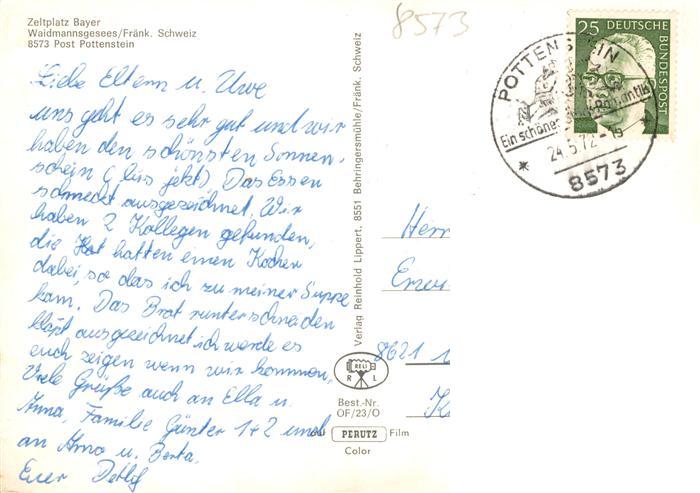 Zeltplatz Bayer
Waidmannsgesees/Fränk. Schweiz
8573 Post Pottenstein
8573
25 DEUTSCHE BUNDESPOST
POTTENSTEIN
Ein schönes Romantik
24.5.72-15
8573
Liebe Eltern u. Uwe
uns geht es sehr gut und wir
haben den schönsten Sonnen-
schein (bis jetzt). Das Essen
schmeckt ausgezeichnet, Wir
haben 2 Kollegen gefunden,
die Hat hatten einen Kocher
dabei, so das ich zu meiner Suppe
kam. Das Brot runterschneiden
klapt ausgezeichnet ich werde es
euch zeigen wenn wir kommen.
Viele Grüße auch an Ella u.
Anna, Familie Günter 1+2 und
an Arno u. Berta.
Euer Detlef
Verlag Reinhold Lippert, 8551 Behringersmühle/Fränk. Schweiz
Herr
8621
RELI
R L
Best.-Nr.
OF/23/O
PERUTZ Film
Color